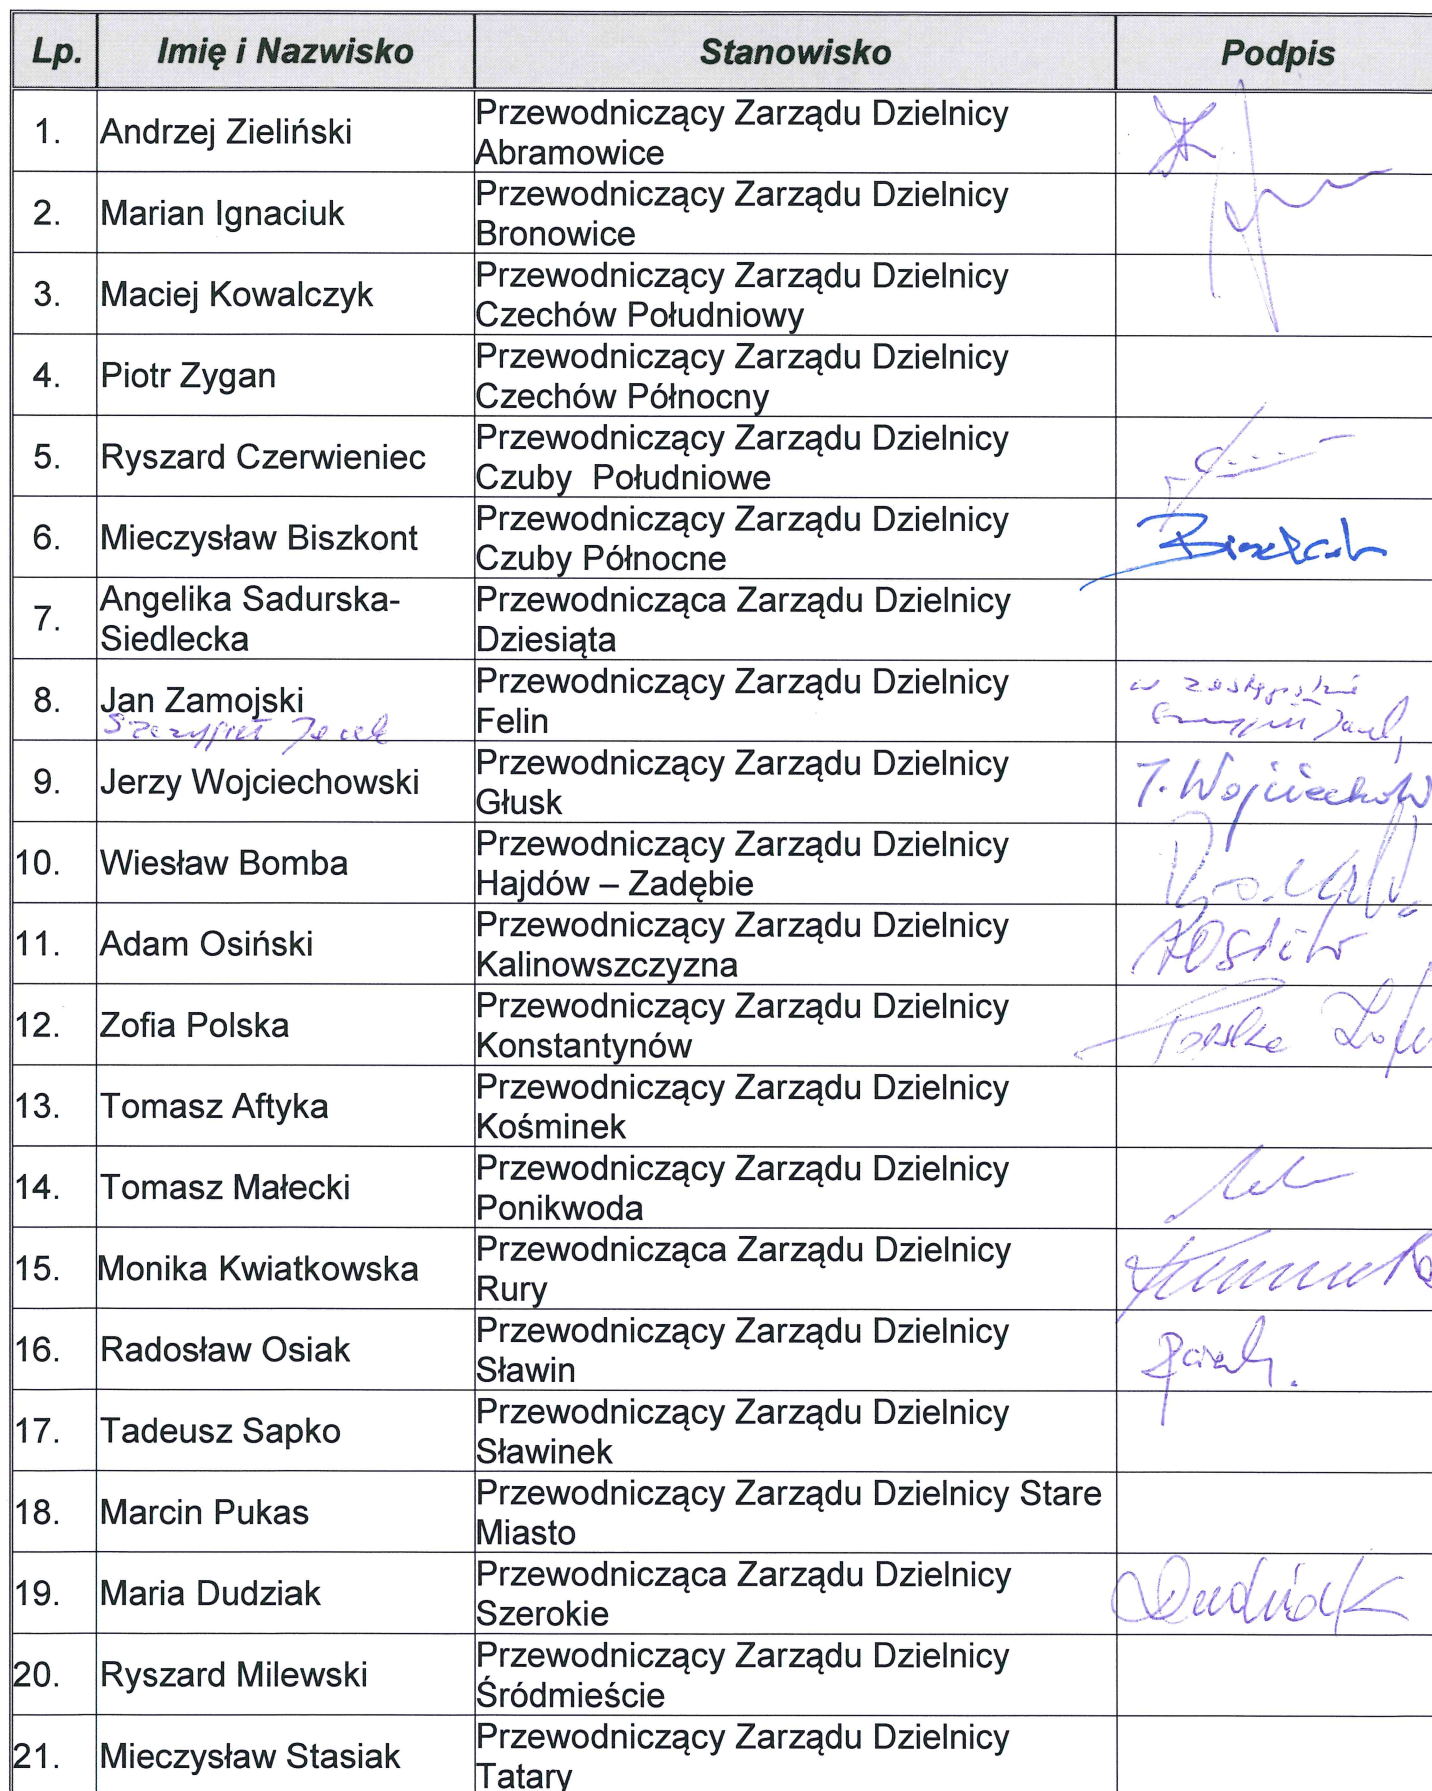 Lp. Imię i Nazwisko Stanowisko Podpis
1. Andrzej Zieliński Przewodniczący Zarządu Dzielnicy
Abramowice
2. Marian Ignaciuk Przewodniczący Zarządu Dzielnicy
Bronowice
3. Maciej Kowalczyk Przewodniczący Zarządu Dzielnicy
Czechów Południowy
4. Piotr Zygan Przewodniczący Zarządu Dzielnicy
Czechów Północny
5. Ryszard Czerwieniec Przewodniczący Zarządu Dzielnicy
Czuby Południowe
6. Mieczysław Biszkont Przewodniczący Zarządu Dzielnicy
Czuby Północne
7. Angelika Sadurska-
Siedlecka
Przewodnicząca Zarządu Dzielnicy
Dziesiąta
8. Jan Zamojski
Jacek
Przewodniczący Zarządu Dzielnicy
Felin
w zastępstwie
Jacek
9. Jerzy Wojciechowski Przewodniczący Zarządu Dzielnicy
Głusk
J. Wojciechow
10. Wiesław Bomba Przewodniczący Zarządu Dzielnicy
Hajdów – Zadębie
11. Adam Osiński Przewodniczący Zarządu Dzielnicy
Kalinowszczyzna
12. Zofia Polska Przewodniczący Zarządu Dzielnicy
Konstantynów
Polska Zofia
13. Tomasz Aftyka Przewodniczący Zarządu Dzielnicy
Kośminek
14. Tomasz Małecki Przewodniczący Zarządu Dzielnicy
Ponikwoda
15. Monika Kwiatkowska Przewodnicząca Zarządu Dzielnicy
Rury
16. Radosław Osiak Przewodniczący Zarządu Dzielnicy
Sławin
17. Tadeusz Sapko Przewodniczący Zarządu Dzielnicy
Sławinek
18. Marcin Pukas Przewodniczący Zarządu Dzielnicy Stare
Miasto
19. Maria Dudziak Przewodnicząca Zarządu Dzielnicy
Szerokie
Dudziak
20. Ryszard Milewski Przewodniczący Zarządu Dzielnicy
Śródmieście
21. Mieczysław Stasiak Przewodniczący Zarządu Dzielnicy
Tatary